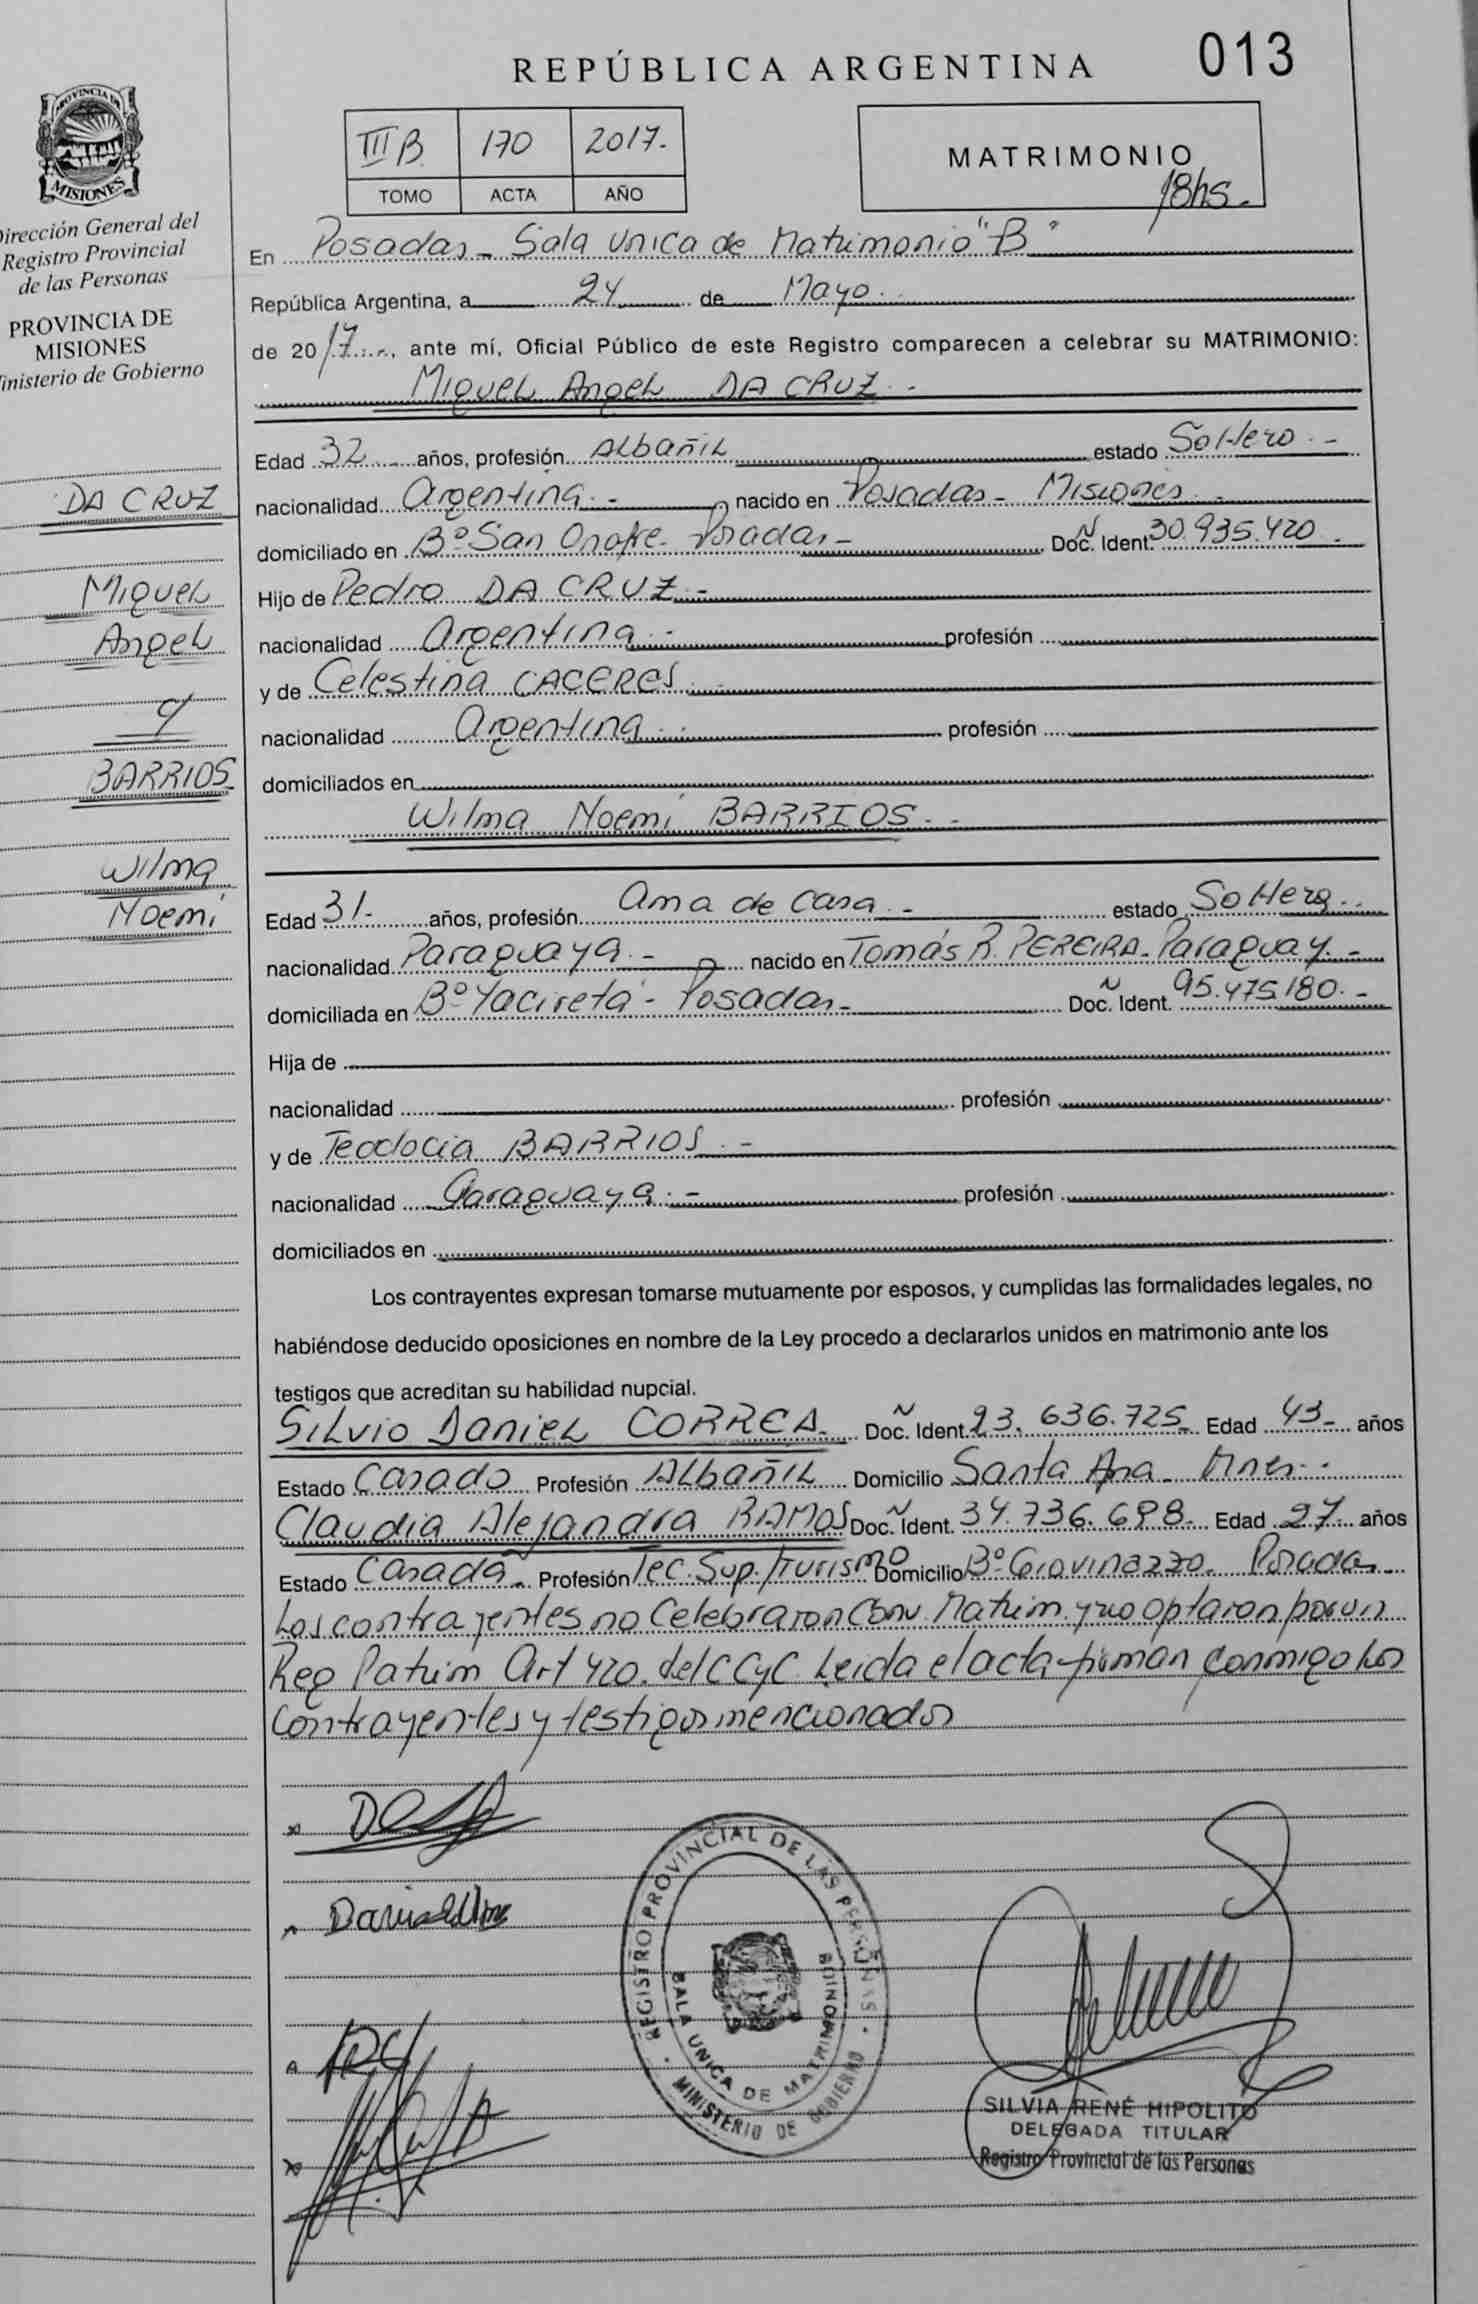 REPÚBLICA ARGENTINA 013
PROVINCIA DE
MISIONES
Dirección General del
Registro Provincial
de las Personas
PROVINCIA DE
MISIONES
Ministerio de Gobierno
III B 170 2017.
TOMO ACTA AÑO
MATRIMONIO
18hs.
En Posadas - Sala Unica de Matrimonio "B"
República Argentina, a 24 de Mayo.
de 2017, ante mí, Oficial Público de este Registro comparecen a celebrar su MATRIMONIO:
Miguel Angel DA CRUZ.-
Edad 32 años, profesión Albañil estado Soltero.-
nacionalidad Argentina.- nacido en Posadas - Misiones.-
domiciliado en Bº San Onofre - Posadas - Doc. Ident. Nº 30.935.420.
Hijo de Pedro DA CRUZ.-
nacionalidad Argentina.- profesión
y de Celestina CACERES.-
nacionalidad Argentina.- profesión
domiciliados en
Wilma Noemi BARRIOS.-
Edad 31.- años, profesión Ama de Casa.- estado Soltera.
nacionalidad Paraguaya.- nacido en Tomás R. PEREIRA - Paraguay.-
domiciliada en Bº Yacireta - Posadas - Doc. Ident. Nº 95.475.180.-
Hija de
nacionalidad profesión
y de Teodocia BARRIOS.-
nacionalidad Paraguaya.- profesión
domiciliados en
Los contrayentes expresan tomarse mutuamente por esposos, y cumplidas las formalidades legales, no
habiéndose deducido oposiciones en nombre de la Ley procedo a declararlos unidos en matrimonio ante los
testigos que acreditan su habilidad nupcial.
Silvio Daniel CORREA. Doc. Ident. Nº 23.636.725 Edad 43 años
Estado Casado Profesión Albañil Domicilio Santa Ana - Mnes.
Claudia Alejandra RAMOS Doc. Ident. Nº 34.736.698. Edad 27 años
Estado Casada Profesión Tec. Sup. Turismo Domicilio Bº Giovinazzo. Posadas
Los contrayentes no Celebraron Conv. Matrim. y no optaron por un
Reg Patrim Art 420. del CCyC. Leida el acta firman conmigo los
contrayentes y testigos mencionados
DA CRUZ
Miguel
Angel
y
BARRIOS
Wilma
Noemi
REGISTRO PROVINCIAL DE LAS PERSONAS
SALA UNICA DE MATRIMONIO
MINISTERIO DE GOBIERNO
SILVIA RENÉ HIPOLITO
DELEGADA TITULAR
Registro Provincial de las Personas